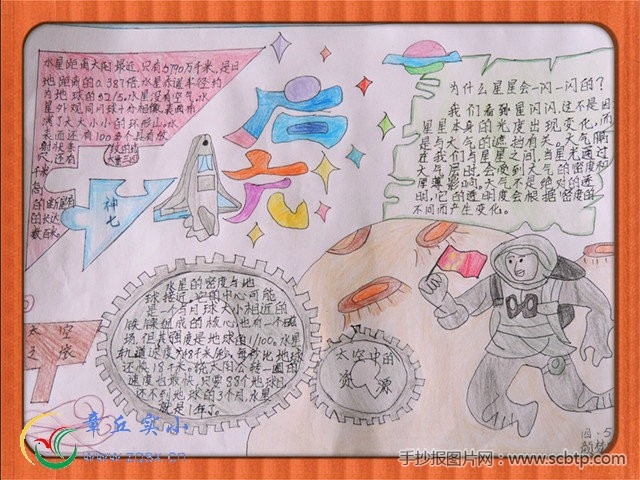 水星距离太阳最近,只有5790万千米,是日
地距离的0.387倍,水星赤道半径约
为地球的92/5.水星没有空气,水
星外观同月球十分相像,表面布
满了大大小小的环形山,水
表面还有100多个具有放
射状条
千米
的
的长达
数百米。
神
七
启
航
为什么星星会一闪一闪的?
我们看到星闪闪,这不是因
星星本身的光度出现变化,而
是与大气的遮挡有关。大气隔
在我们与星星之间,当星光通过
大气层时,会受到大气的密度和
厚薄影响。大气不是绝对的透
明,它的透明度会根据密度的
不同而产生变化。
水星的密度与地
球接近,它的中心可能
是一个与月球大小相近的
铁镍组成的核心,也有一个磁
场,但其强度是地球的1/100。水星
轨道速度为48千米/秒,每秒比地球
还快18千米。绕太阳公转一圈的
速度也最快,只要88个地球日,
还不到地球的3个月,水星
就是1年了。
太空中的
资源
太空
之旅
四.5
章丘实小
手抄报图片网:www.scbtp.com